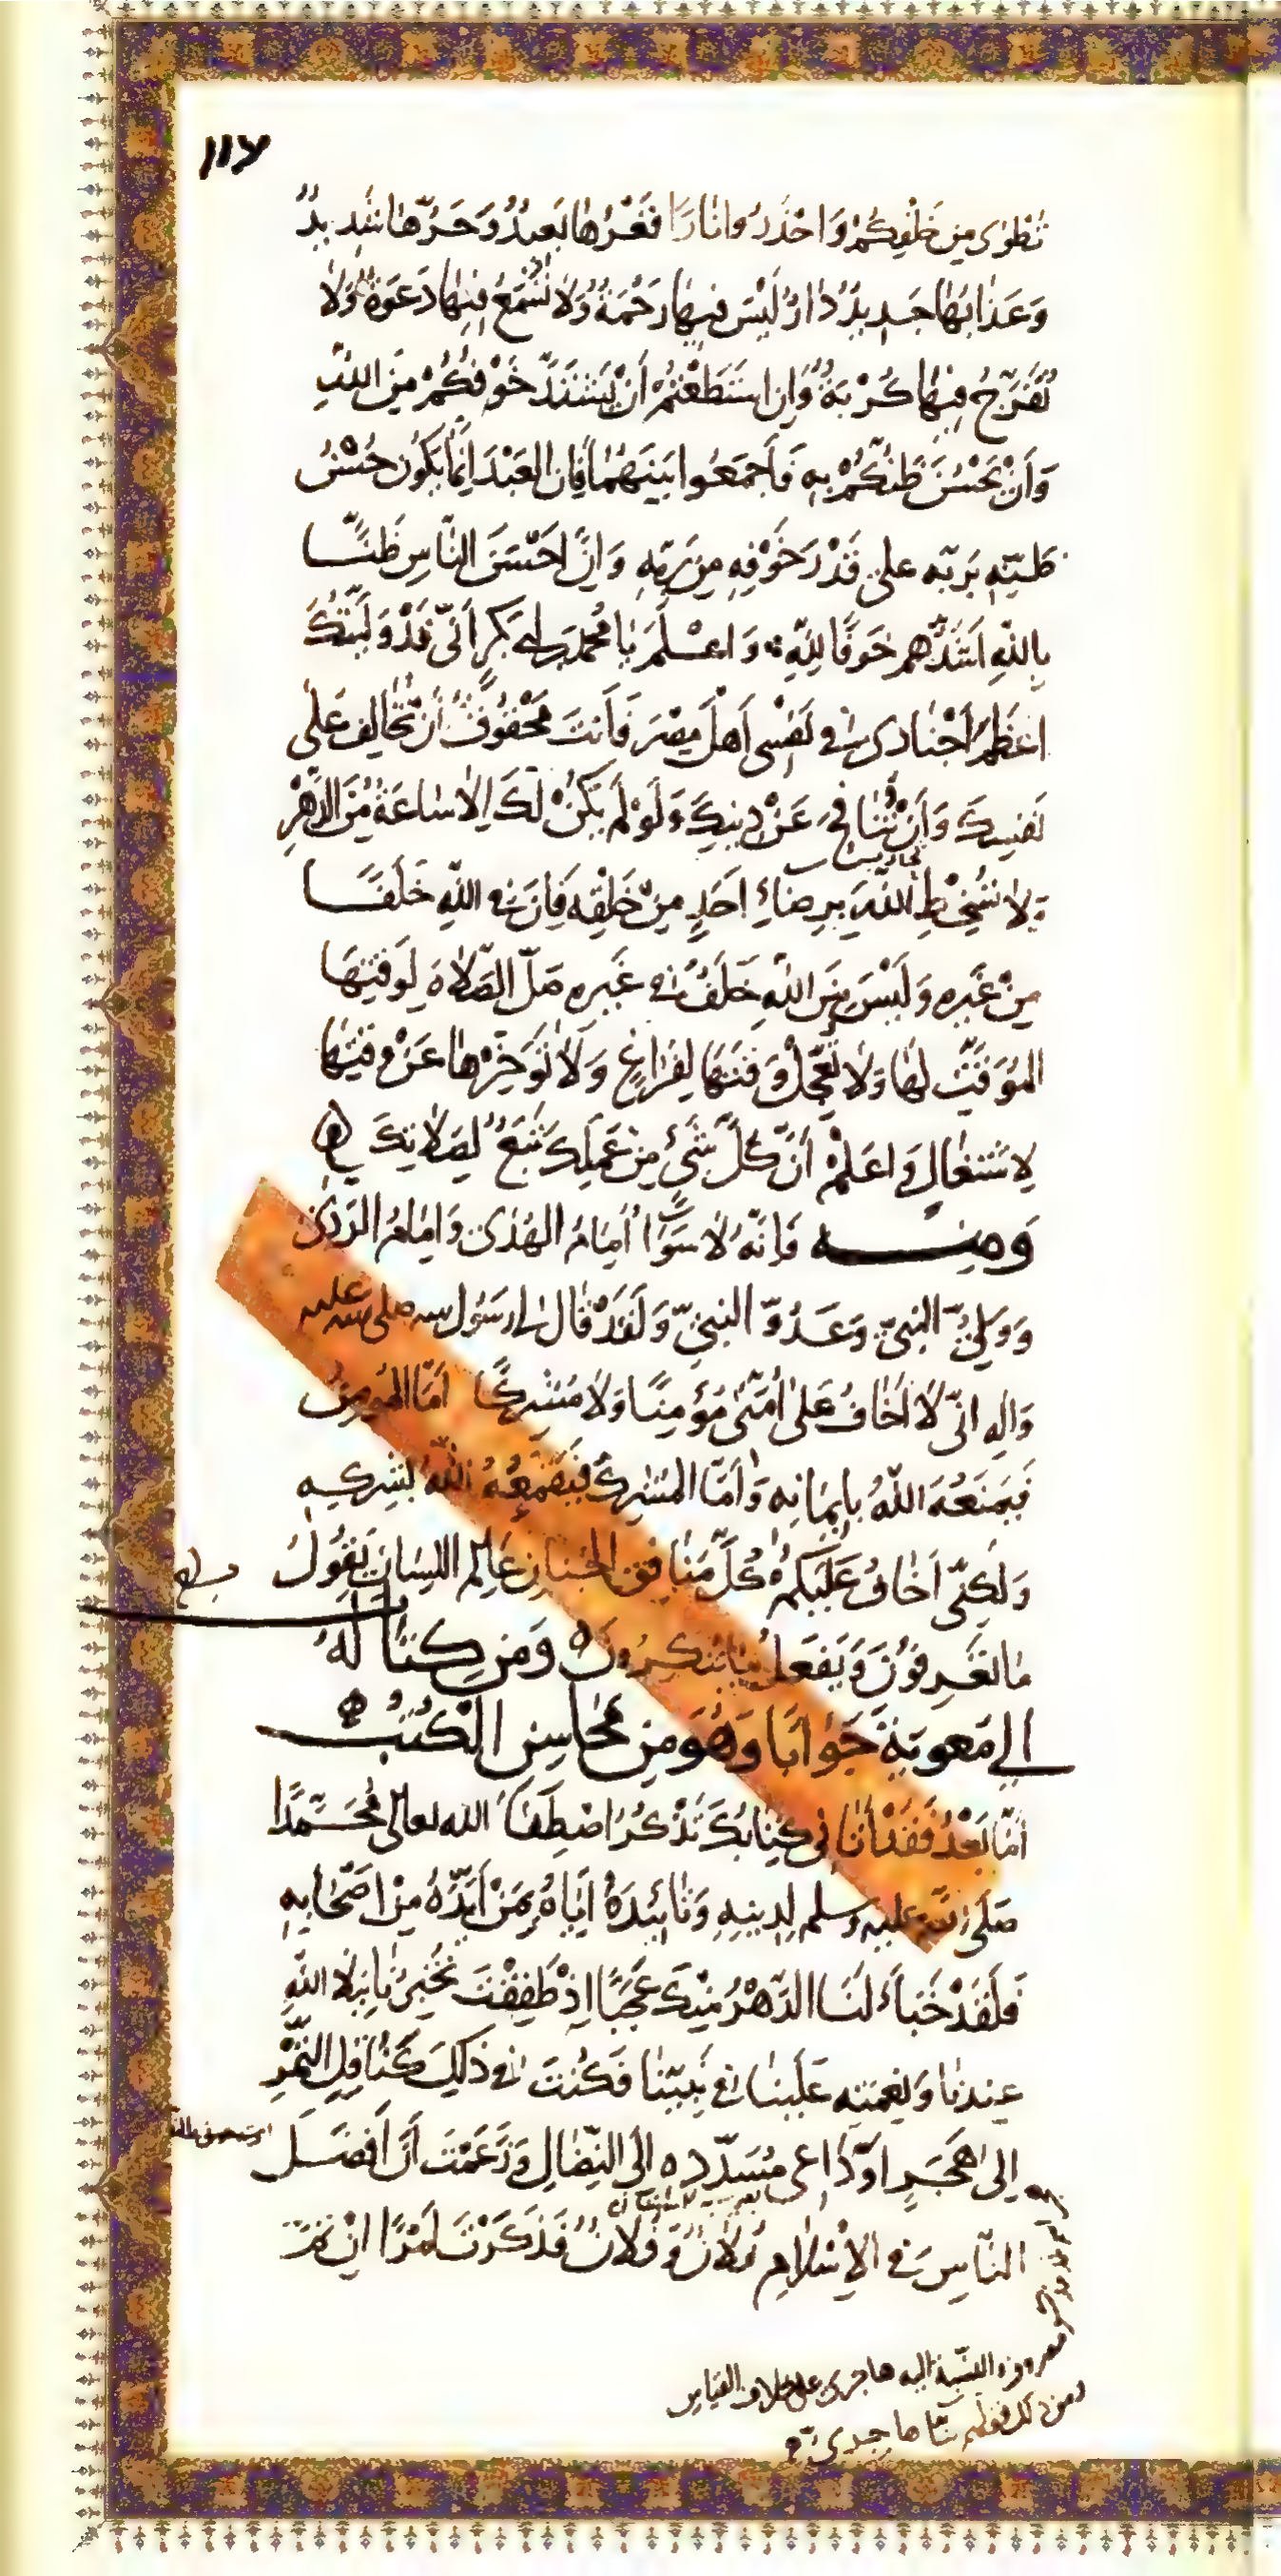 ١١٧
تُطْوٰى مِنْ خَلْفِكُمْ وَاحْذَرُوا نَارًا قَعْرُهَا بَعِيدٌ وَحَرُّهَا شَدِيدٌ
وَعَذَابُهَا جَدِيدٌ دَارٌ لَيْسَ فِيهَا رَحْمَةٌ وَلَا تُسْمَعُ فِيهَا دَعْوَةٌ وَلَا
تُفَرَّجُ فِيهَا كُرْبَةٌ وَإِنِ اسْتَطَعْتُمْ أَنْ يَشْتَدَّ خَوْفُكُمْ مِنَ اللهِ
وَأَنْ يَحْسُنَ ظَنُّكُمْ بِهِ فَاجْمَعُوا بَيْنَهُمَا فَإِنَّ الْعَبْدَ إِنَّمَا يَكُونُ حُسْنُ
ظَنِّهِ بِرَبِّهِ عَلَى قَدْرِ خَوْفِهِ مِنْ رَبِّهِ وَإِنَّ أَحْسَنَ النَّاسِ ظَنًّا
بِاللهِ أَشَدُّهُمْ خَوْفًا لِلَّهِ وَاعْلَمْ يَا مُحَمَّدَ بْنَ أَبِي بَكْرٍ أَنِّي قَدْ وَلَّيْتُكَ
أَعْظَمَ أَجْنَادِي فِي نَفْسِي أَهْلَ مِصْرَ فَأَنْتَ مَحْقُوقٌ أَنْ تُخَالِفَ عَلَى
نَفْسِكَ وَأَنْ تُنَافِحَ عَنْ دِينِكَ وَلَوْ لَمْ يَكُنْ لَكَ إِلَّا سَاعَةٌ مِنَ الدَّهْرِ
وَلَا تُسْخِطِ اللهَ بِرِضَاءِ أَحَدٍ مِنْ خَلْقِهِ فَإِنَّ فِي اللهِ خَلَفًا
مِنْ غَيْرِهِ وَلَيْسَ مِنَ اللهِ خَلَفٌ فِي غَيْرِهِ صَلِّ الصَّلَاةَ لِوَقْتِهَا
الْمُوَقَّتِ لَهَا وَلَا تُعَجِّلْ وَقْتَهَا لِفَرَاغٍ وَلَا تُؤَخِّرْهَا عَنْ وَقْتِهَا
لِاشْتِغَالٍ وَاعْلَمْ أَنَّ كُلَّ شَيْءٍ مِنْ عَمَلِكَ تَبَعٌ لِصَلَاتِكَ
وَمِنْهُ فَإِنَّهُ لَا سَوَاءٌ إِمَامُ الْهُدَى وَإِمَامُ الرَّدَى
وَوَلِيُّ النَّبِيِّ وَعَدُوُّ النَّبِيِّ وَلَقَدْ قَالَ لِي رَسُولُ اللهِ صلى الله عليه
وَآلِهِ إِنِّي لَا أَخَافُ عَلَى أُمَّتِي مُؤْمِنًا وَلَا مُشْرِكًا أَمَّا الْمُؤْمِنُ
فَيَمْنَعُهُ اللهُ بِإِيمَانِهِ وَأَمَّا الْمُشْرِكُ فَيَقْمَعُهُ اللهُ بِشِرْكِهِ
وَلَكِنِّي أَخَافُ عَلَيْكُمْ كُلَّ مُنَافِقِ الْجَنَانِ عَالِمِ اللِّسَانِ يَقُولُ
مَا تَعْرِفُونَ وَيَفْعَلُ مَا تُنْكِرُونَ وَمِنْ كِتَابٍ لَهُ
إِلَى مُعَوِيَةَ جَوَابًا وَهُوَ مِنْ مَحَاسِنِ الْكُتُبِ
أَمَّا بَعْدُ فَقَدْ أَتَانِي كِتَابُكَ تَذْكُرُ اصْطِفَاءَ الله تعالى مُحَمَّدًا
صَلَّى الله عليه وسلم لِدِينِهِ وَتَأْيِيدَهُ إِيَّاهُ بِمَنْ أَيَّدَهُ مِنْ أَصْحَابِهِ
فَلَقَدْ خَبَأَ لَنَا الدَّهْرُ مِنْكَ عَجَبًا إِذْ طَفِقْتَ تُخْبِرُنَا بِبَلَاءِ اللهِ
عِنْدَنَا وَنِعْمَتِهِ عَلَيْنَا فِي نَبِيِّنَا فَكُنْتَ فِي ذَلِكَ كَنَاقِلِ التَّمْرِ
إِلَى هَجَرٍ أَوْ دَاعِي مُسَدِّدِهِ إِلَى النِّضَالِ وَزَعَمْتَ أَنَّ أَفْضَلَ
النَّاسِ فِي الْإِسْلَامِ فُلَانٌ وَفُلَانٌ فَذَكَرْتَ أَمْرًا إِنْ تَمَّ
معروفة والنسبة اليه هاجرى على خلاف القياس